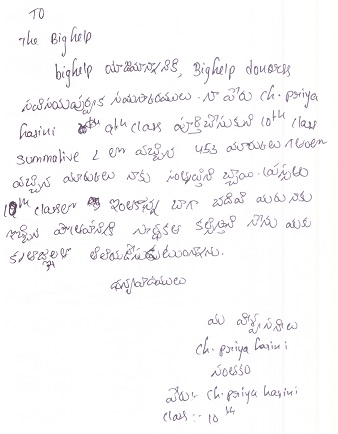 TO
The Bighelp
bighelp యాజమాన్యానికి, Bighelp donorss
సవినయపూర్వక నమస్కారములు. నా పేరు ch. priya
harini 9th class పూర్తిచేసుకుని 10th class
summative 2 లో వచ్చిన 453 మార్కులు
వచ్చిన మార్కులు నాకు సంతృప్తిని
10th classలో ఇంకా బాగా చదివి మీరు నాకు
నేను మీకు
కృతజ్ఞతలు తెలియచేసుకుంటున్నాను.
ధన్యవాదములు
మీ విశ్వసనీయులు
ch. priya harini
సంతకం
పేరు:- ch. priya harini
class :- 10th